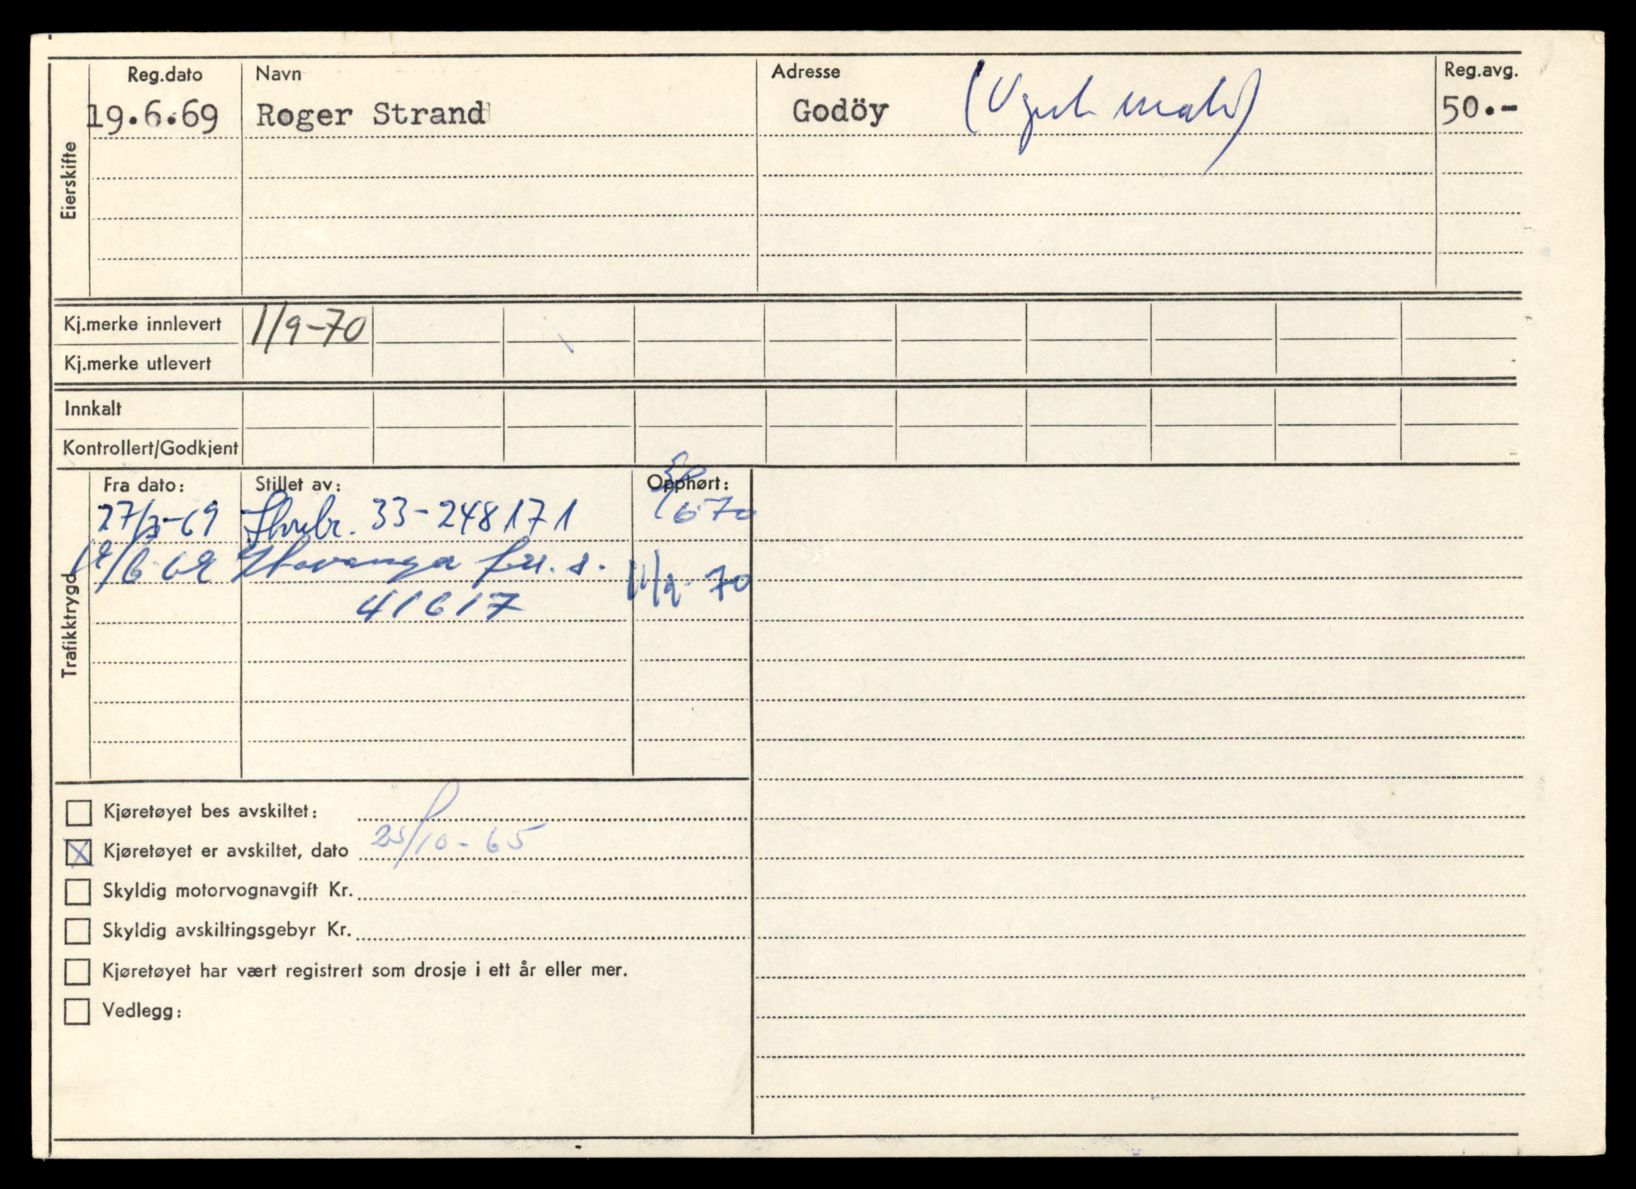 Reg.dato Navn Adresse Reg.avg.
19.6.69 Roger Strand Godöy 50.-
Eierskifte
Kj.merke innlevert 1/9-70
Kj.merke utlevert
Innkalt
Kontrollert/Godkjent
Fra dato: Stillet av: Opphørt:
27/3-69 33-248171 670
Trafikktrygd
/6 69 11/9-70
41617
Kjøretøyet bes avskiltet:
Kjøretøyet er avskiltet, dato 25/10-65
Skyldig motorvognavgift Kr.
Skyldig avskiltingsgebyr Kr.
Kjøretøyet har vært registrert som drosje i ett år eller mer.
Vedlegg: